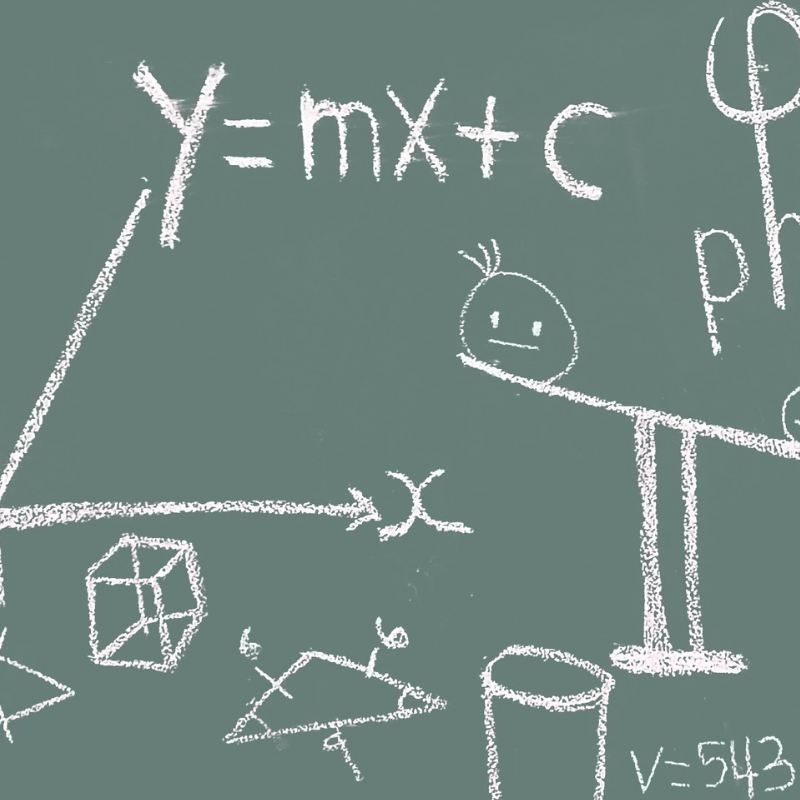 y=mx+c
φ
ph
x
6 6
9
V=543